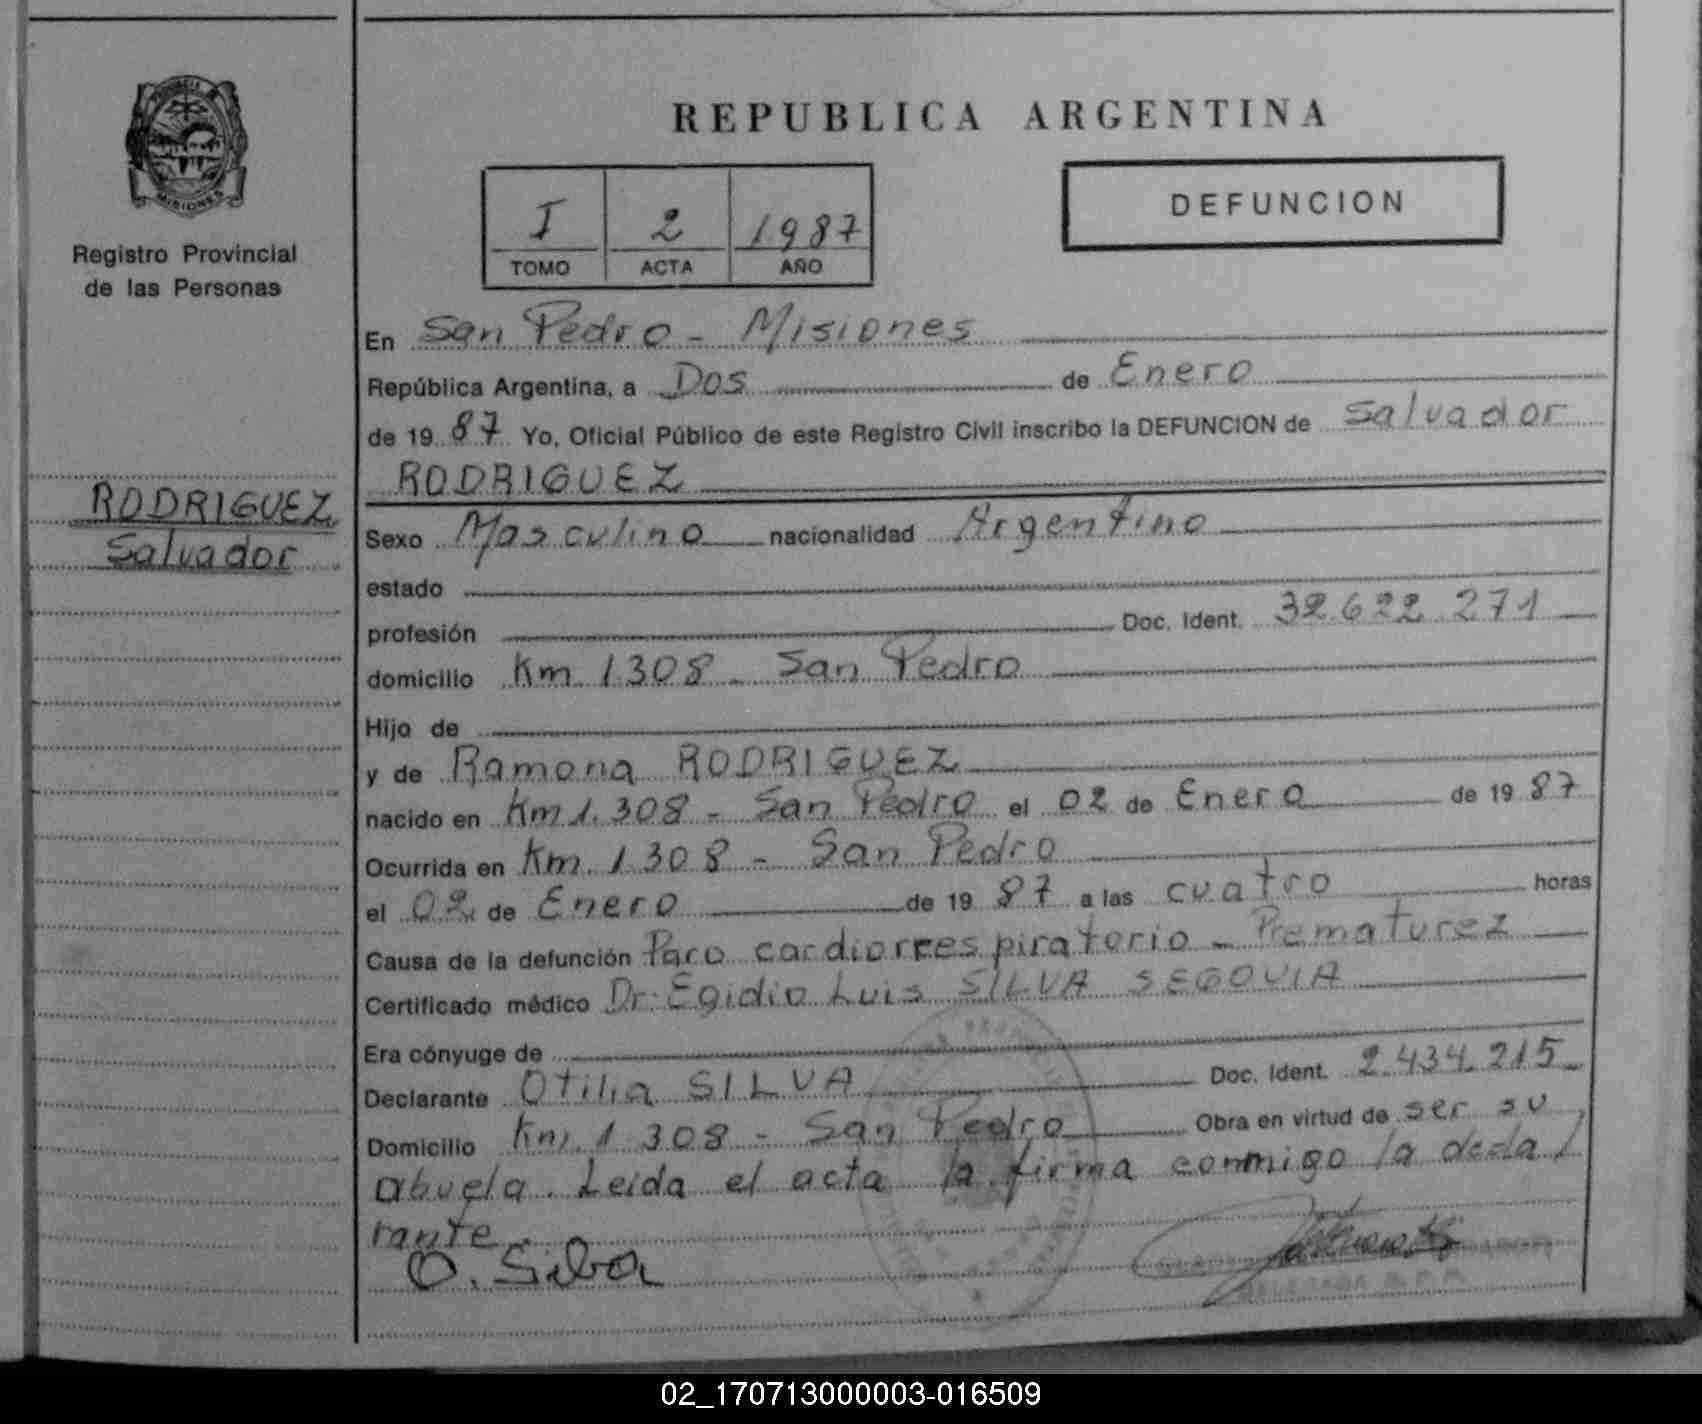 PROVINCIA DE
MISIONES
Registro Provincial
de las Personas
RODRIGUEZ
Salvador
REPUBLICA ARGENTINA
I 2 1987
TOMO ACTA AÑO
DEFUNCION
En San Pedro - Misiones
República Argentina, a Dos de Enero
de 1987 Yo, Oficial Público de este Registro Civil inscribo la DEFUNCION de Salvador
RODRIGUEZ
Sexo Masculino nacionalidad Argentino
estado
profesión Doc. Ident. 32.622.271
domicilio Km 1308 - San Pedro
Hijo de
y de Ramona RODRIGUEZ
nacido en Km 1.308 - San Pedro el 02 de Enero de 1987
Ocurrida en Km. 1308 - San Pedro
el 02 de Enero de 1987 a las cuatro horas
Causa de la defunción Paro cardiorrespiratorio - Prematurez
Certificado médico Dr. Egidio Luis SILVA SEGOVIA
Era cónyuge de
Declarante Otilia SILVA Doc. Ident. 2.434.215
Domicilio Km. 1308 - San Pedro Obra en virtud de ser su
abuela. Leida el acta la firma conmigo la decla/
rante
O. Silva
02_170713000003-016509